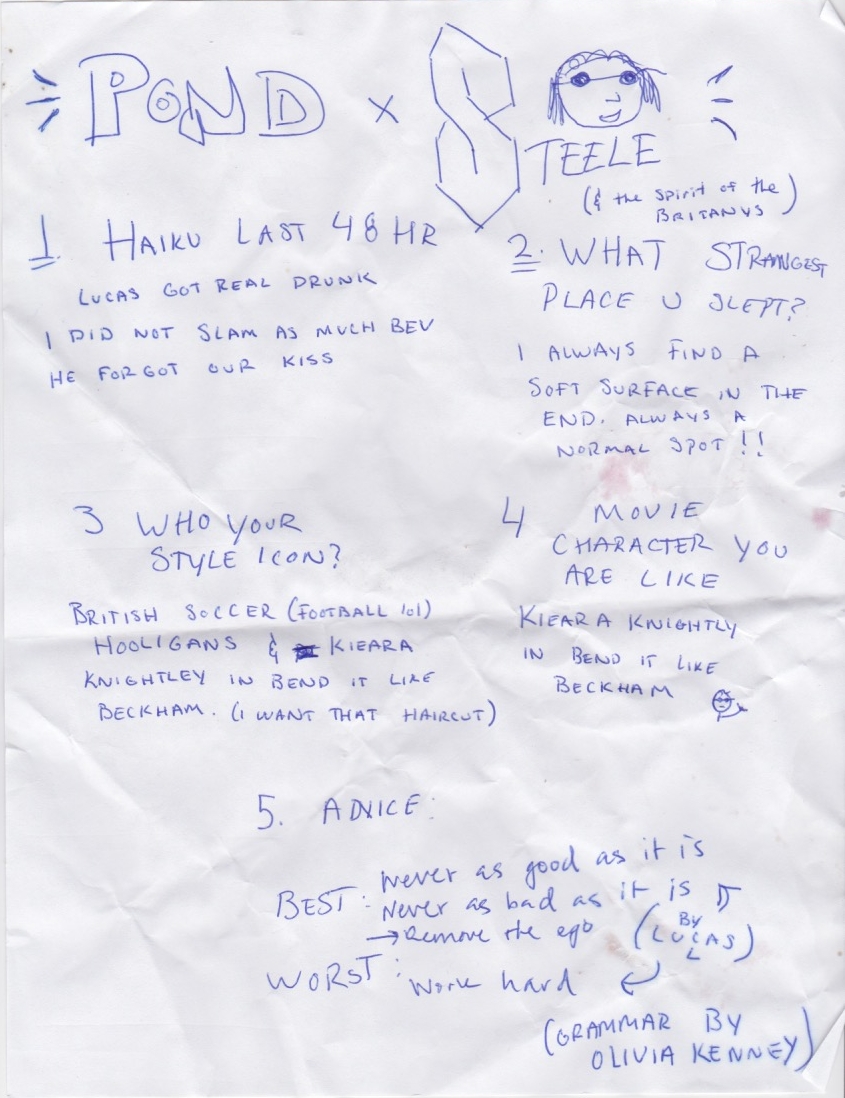 POND x STEELE
(& the spirit of the
BRITANYS)
1. HAIKU LAST 48 HR
LUCAS GOT REAL DRUNK
I DID NOT SLAM AS MUCH BEV
HE FORGOT OUR KISS
2. WHAT STRANGEST
PLACE U SLEPT?
I ALWAYS FIND A
SOFT SURFACE IN THE
END. ALWAYS A
NORMAL SPOT!!
3 WHO YOUR
STYLE ICON?
BRITISH SOCCER (FOOTBALL lol)
HOOLIGANS & KIEARA
KNIGHTLEY IN BEND IT LIKE
BECKHAM. (I WANT THAT HAIRCUT)
4 MOVIE
CHARACTER YOU
ARE LIKE
KIEARA KNIGHTLY
IN BEND IT LIKE
BECKHAM
5. ADVICE:
BEST: Never as good as it is
Never as bad as it is
→ Remove the ego (BY LUCAS L)
WORST: Work hard
(GRAMMAR BY
OLIVIA KENNEY)